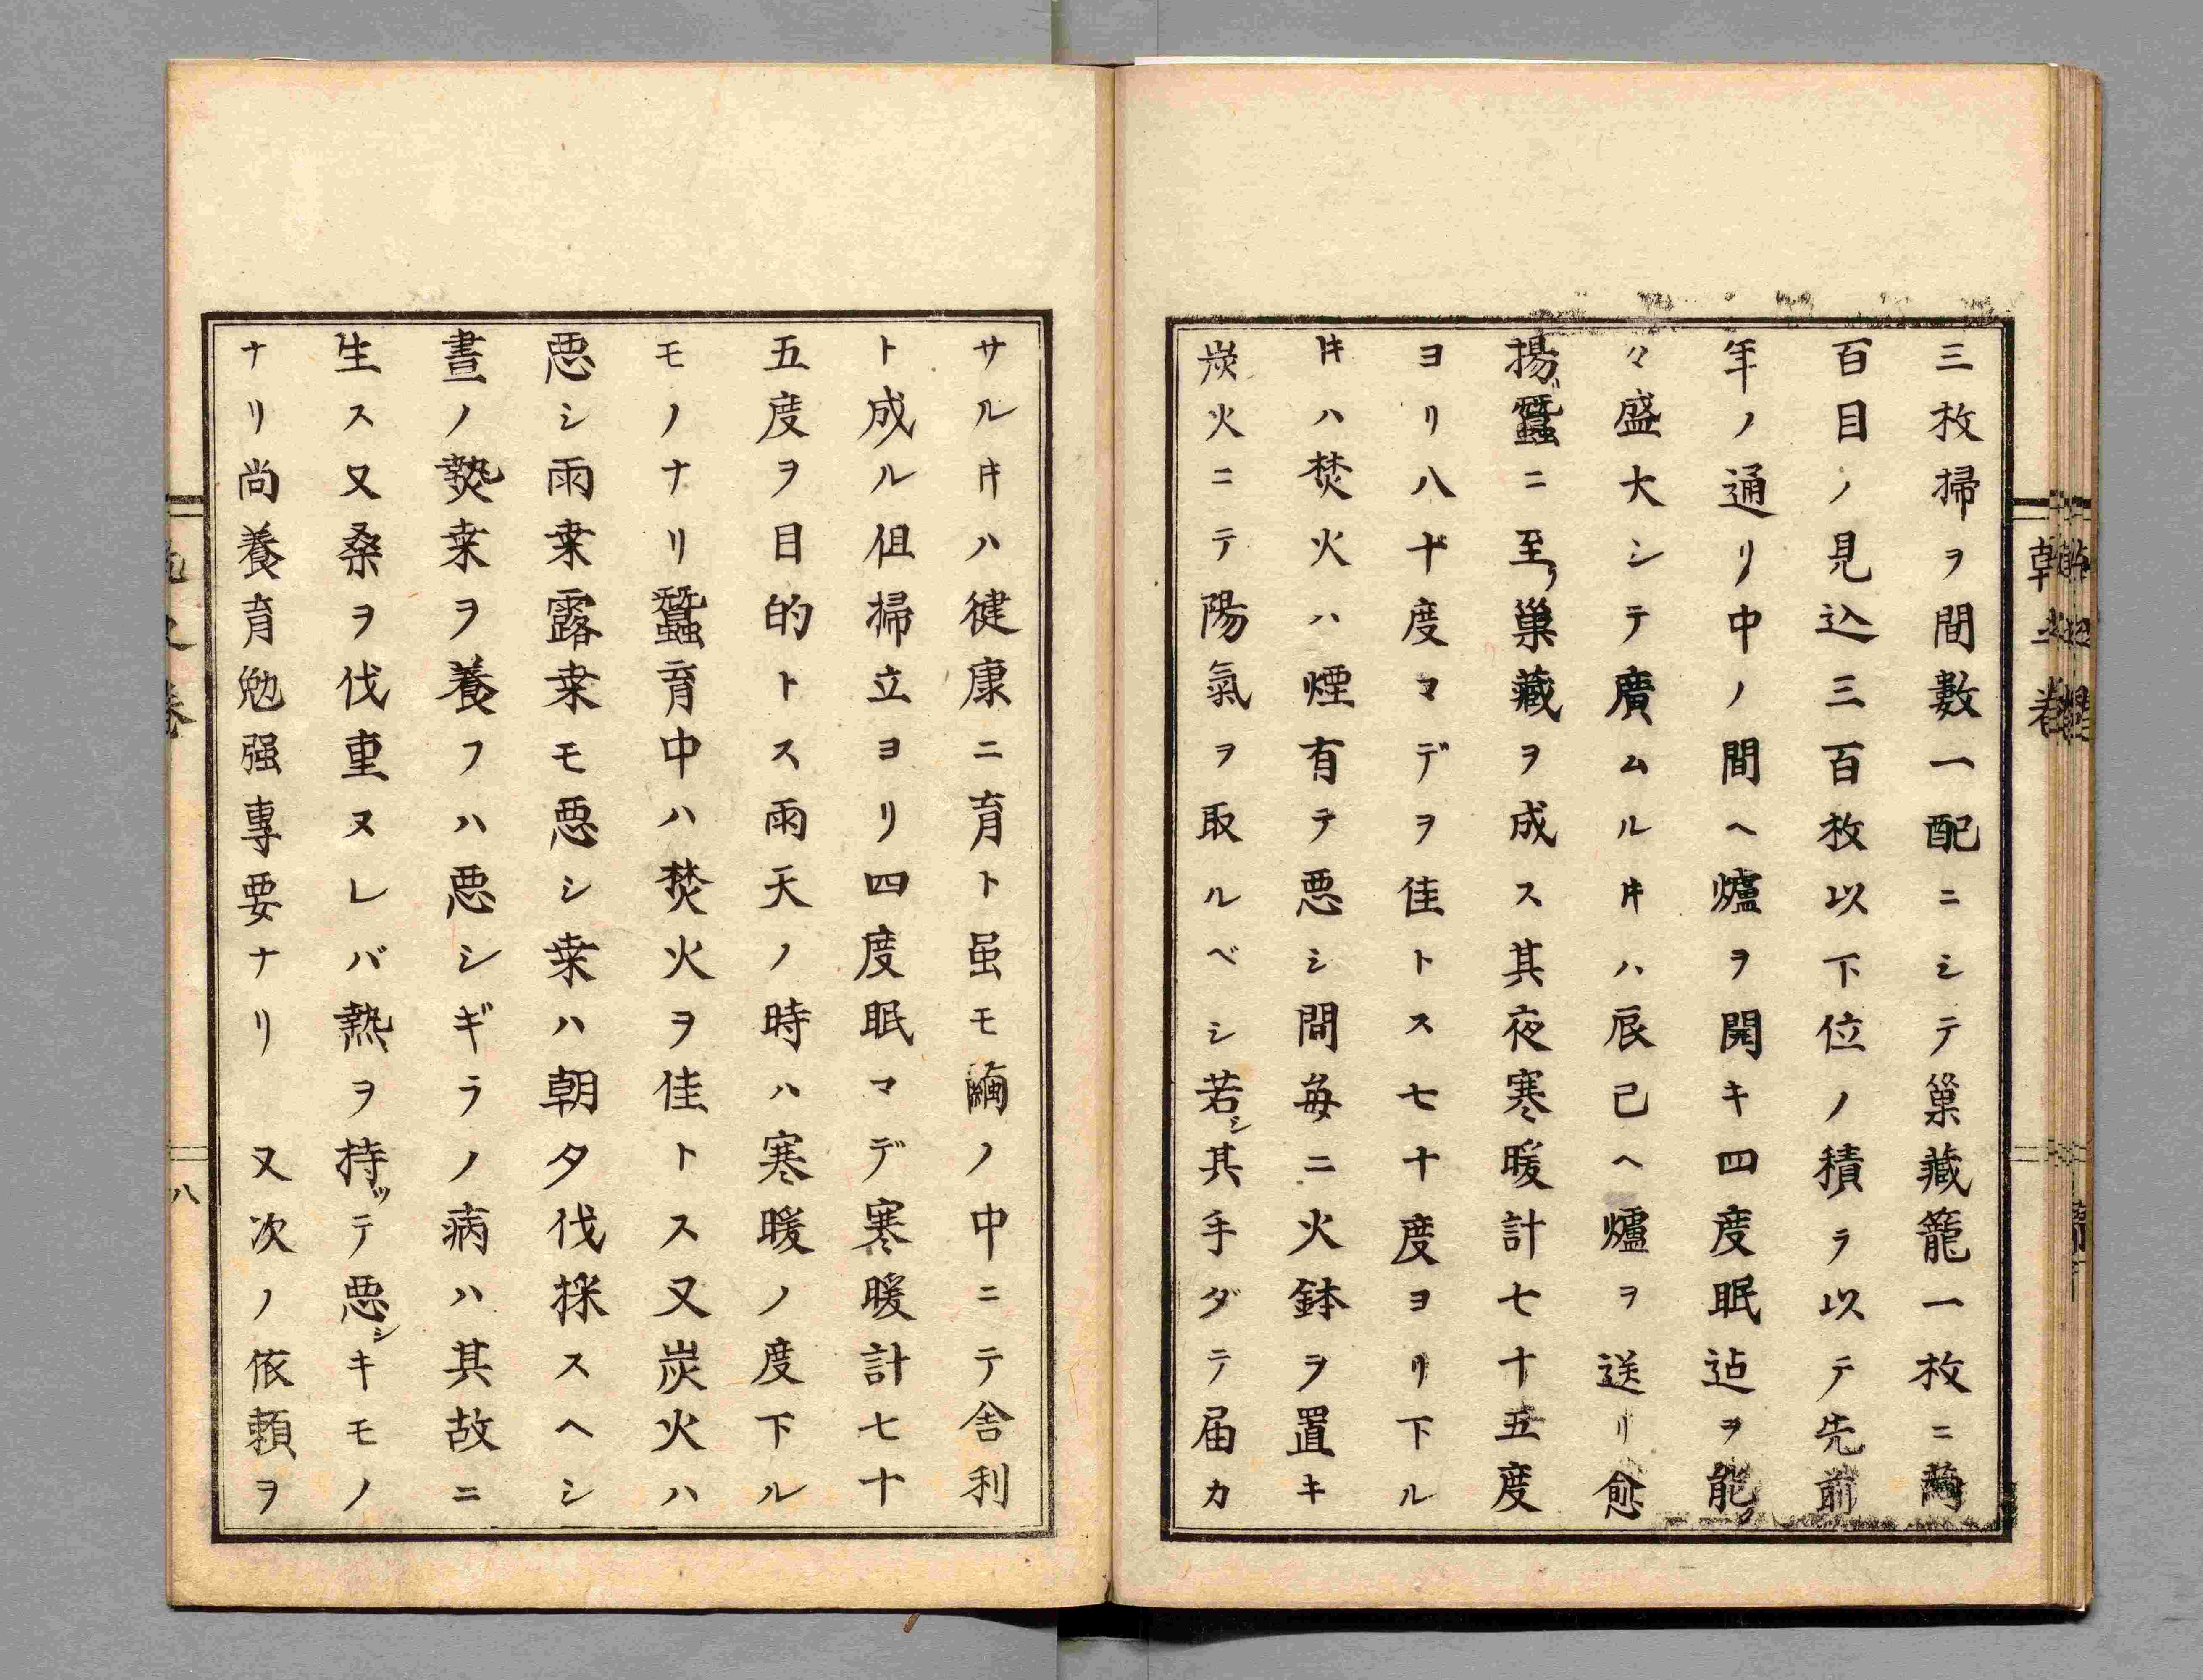 三枚掃ヲ間數一配ニシテ巢藏籠一枚ニ繭
百目ノ見込三百枚以下位ノ積ラ以テ先前
年ノ通リ中ノ間ヘ爐ヲ開キ四度眠迠ヲ能ク
々盛大シテ廣ムル𪜈ハ辰己ヘ爐ヲ送リ愈
揚ゲ蠶ニ至リ巢藏ヲ成ス其夜寒暖計七十五度
ヨリ八十度マデヲ佳トス七十度ヨリ下ル
𪜈ハ焚火ハ煙有テ悪シ間每ニ火鉢ヲ置キ
炭火ニテ陽氣ヲ取ルベシ若シ其手ダテ届カ
サル𪜈ハ健康ニ育ト虽モ繭ノ中ニテ舎利
ト成ル伹掃立ヨリ四度眠マデ寒暖計七十
五度ヲ目的トス雨天ノ時ハ寒暖ノ度下ル
モノナリ蠶育中ハ焚火ヲ佳トス又炭火ハ
悪シ雨桒露桒モ悪シ桒ハ朝夕伐採スヘシ
晝ノ𤍠桒ヲ養フハ悪シギラノ病ハ其故ニ
生ス又桑ヲ伐重ヌレバ熱ヲ持ツテ悪シキモノ
ナリ尚養育勉强專要ナリ　又次ノ依頼ヲ
八